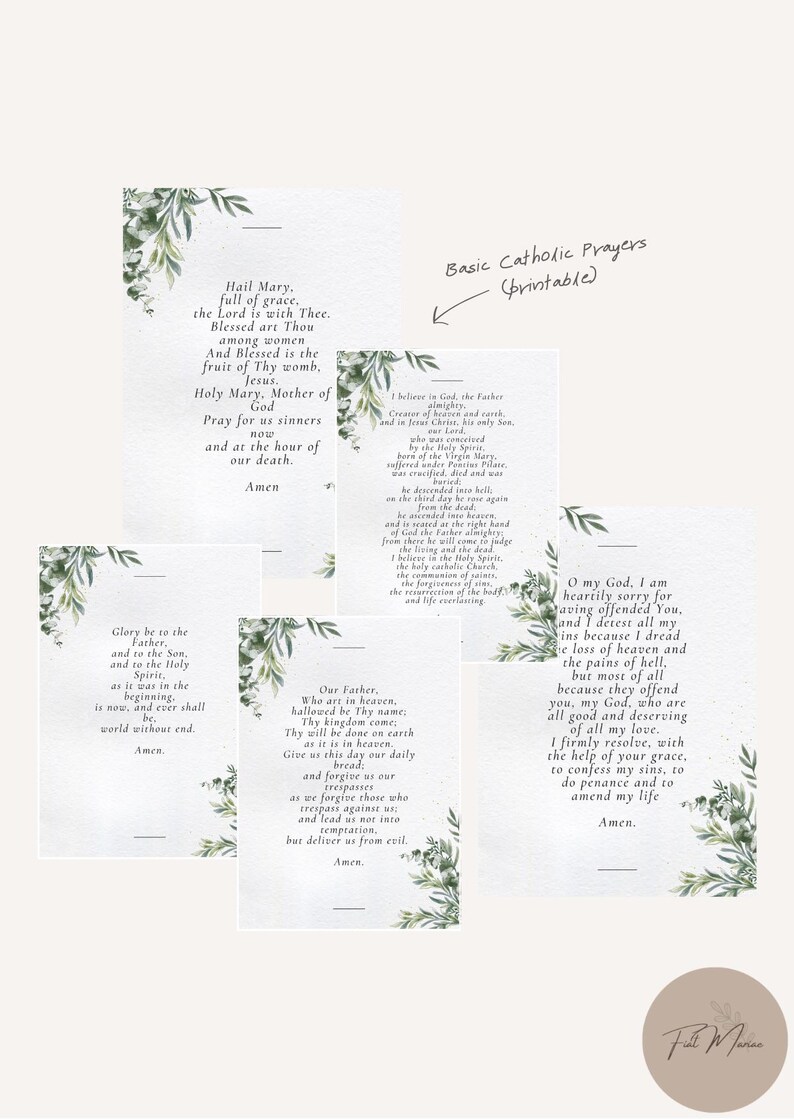 Basic Catholic Prayers
(printable)
Hail Mary,
full of grace,
the Lord is with Thee.
Blessed art Thou
among women
And Blessed is the
fruit of Thy womb,
Jesus.
Holy Mary, Mother of
God
Pray for us sinners
now
and at the hour of
our death.
Amen
I believe in God, the Father
almighty,
Creator of heaven and earth,
and in Jesus Christ, his only Son,
our Lord,
who was conceived
by the Holy Spirit,
born of the Virgin Mary,
suffered under Pontius Pilate,
was crucified, died and was
buried;
he descended into hell;
on the third day he rose again
from the dead;
he ascended into heaven,
and is seated at the right hand
of God the Father almighty;
from there he will come to judge
the living and the dead.
I believe in the Holy Spirit,
the holy catholic Church,
the communion of saints,
the forgiveness of sins,
the resurrection of the body,
and life everlasting.
Glory be to the
Father,
and to the Son,
and to the Holy
Spirit,
as it was in the
beginning,
is now, and ever shall
be,
world without end.
Amen.
Our Father,
Who art in heaven,
hallowed be Thy name;
Thy kingdom come;
Thy will be done on earth
as it is in heaven.
Give us this day our daily
bread;
and forgive us our
trespasses
as we forgive those who
trespass against us;
and lead us not into
temptation,
but deliver us from evil.
Amen.
O my God, I am
heartily sorry for
aving offended You,
and I detest all my
ins because I dread
e loss of heaven and
the pains of hell,
but most of all
because they offend
you, my God, who are
all good and deserving
of all my love.
I firmly resolve, with
the help of your grace,
to confess my sins, to
do penance and to
amend my life
Amen.
Fiat Mariae